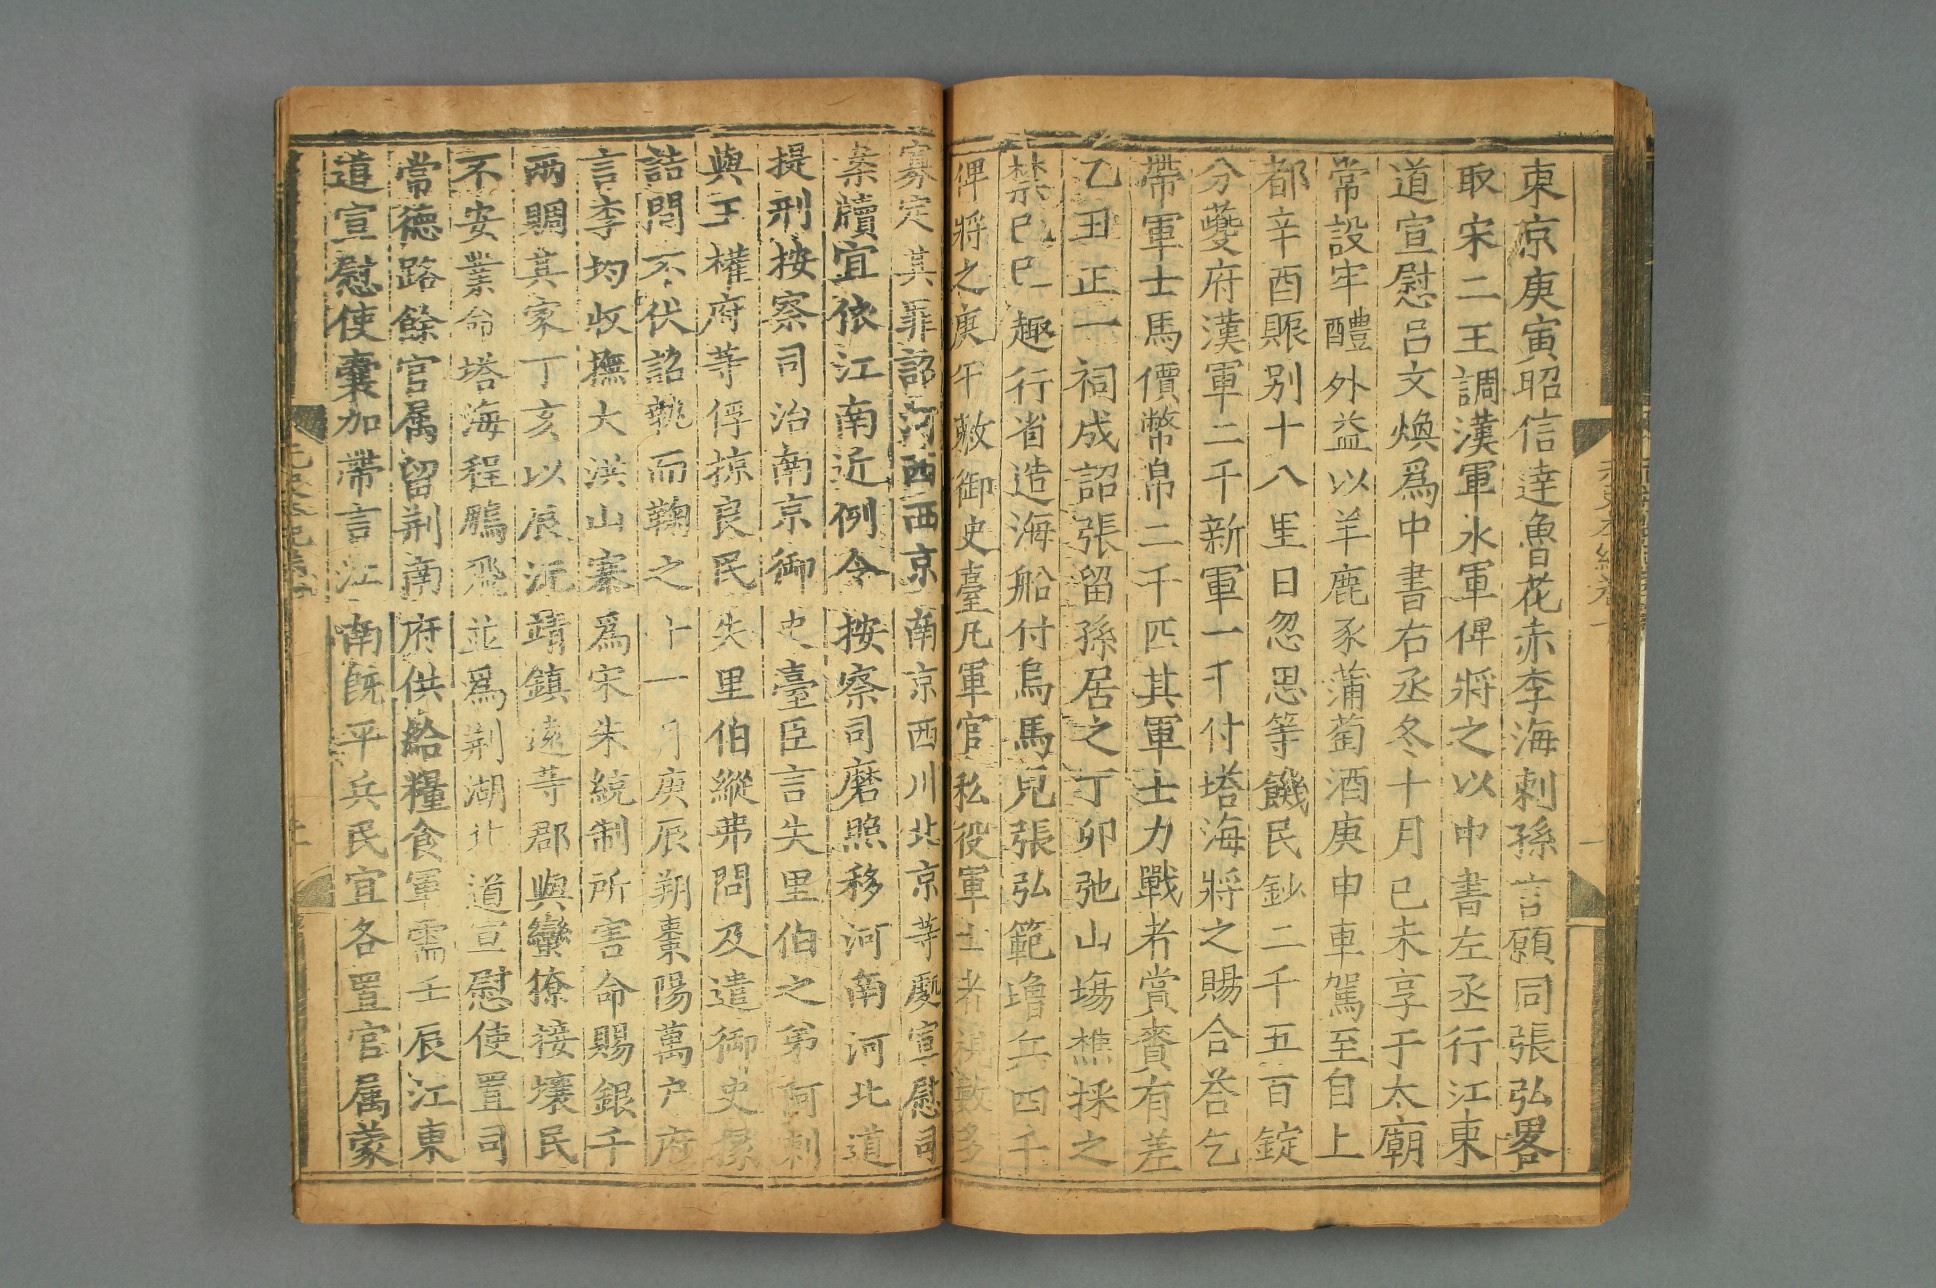 東京庚寅昭信達魯花赤李海剌孫言願同張弘略
取宋二王調漢軍水軍俾將之以中書左丞行江東
道宣慰呂文煥爲中書右丞冬十月己未享于太廟
常設牢醴外益以羊鹿豕蒲萄酒庚申車駕至自上
都辛酉賑别十八里日忽思等饑民鈔二千五百錠
分夔府漢軍二千新軍一千付塔海將之賜合荅乞
帶軍士馬價幣帛二千匹其軍士力戰者賞賚有差
乙丑正一祠成詔張留孫居之丁卯弛山塲樵採之
禁己巳趣行省造海船付烏馬兒張弘範增兵四千
俾將之庚午敕御史臺凡軍官私役軍士者視數多
寡定其罪詔河西西京南京西川北京等處宣慰司
案牘宜依江南近例令按察司磨照移河南河北道
提刑按察司治南京御史臺臣言失里伯之弟阿剌
與王權府等俘掠良民失里伯縱弗問及遣御史掾
詰問不伏詔執而鞠之十一月庚辰朔棗陽萬户府
言李均收撫大洪山寨爲宋朱統制所害命賜銀千
兩賙其家丁亥以辰沅靖鎮遠等郡與蠻獠接壤民
不安業命塔海程鵬飛並爲荆湖北道宣慰使置司
常德路餘官属留荆南府供給糧食軍需壬辰江東
道宣慰使囊加帶言江南既平兵民宜各置官属蒙